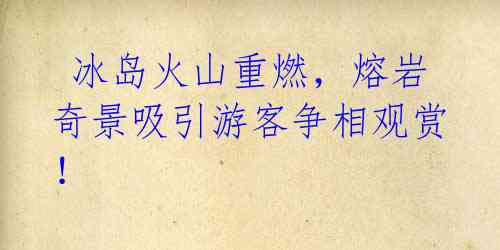 冰岛火山重燃，熔岩
奇景吸引游客争相观赏
！